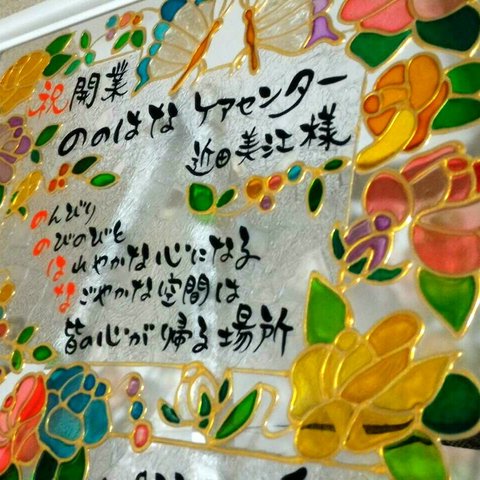 祝開業
ののはな ケアセンター
近田美江様
のんびり
のびのびと
はれやかな心になる
なごやかな空間は
皆の心が帰る場所